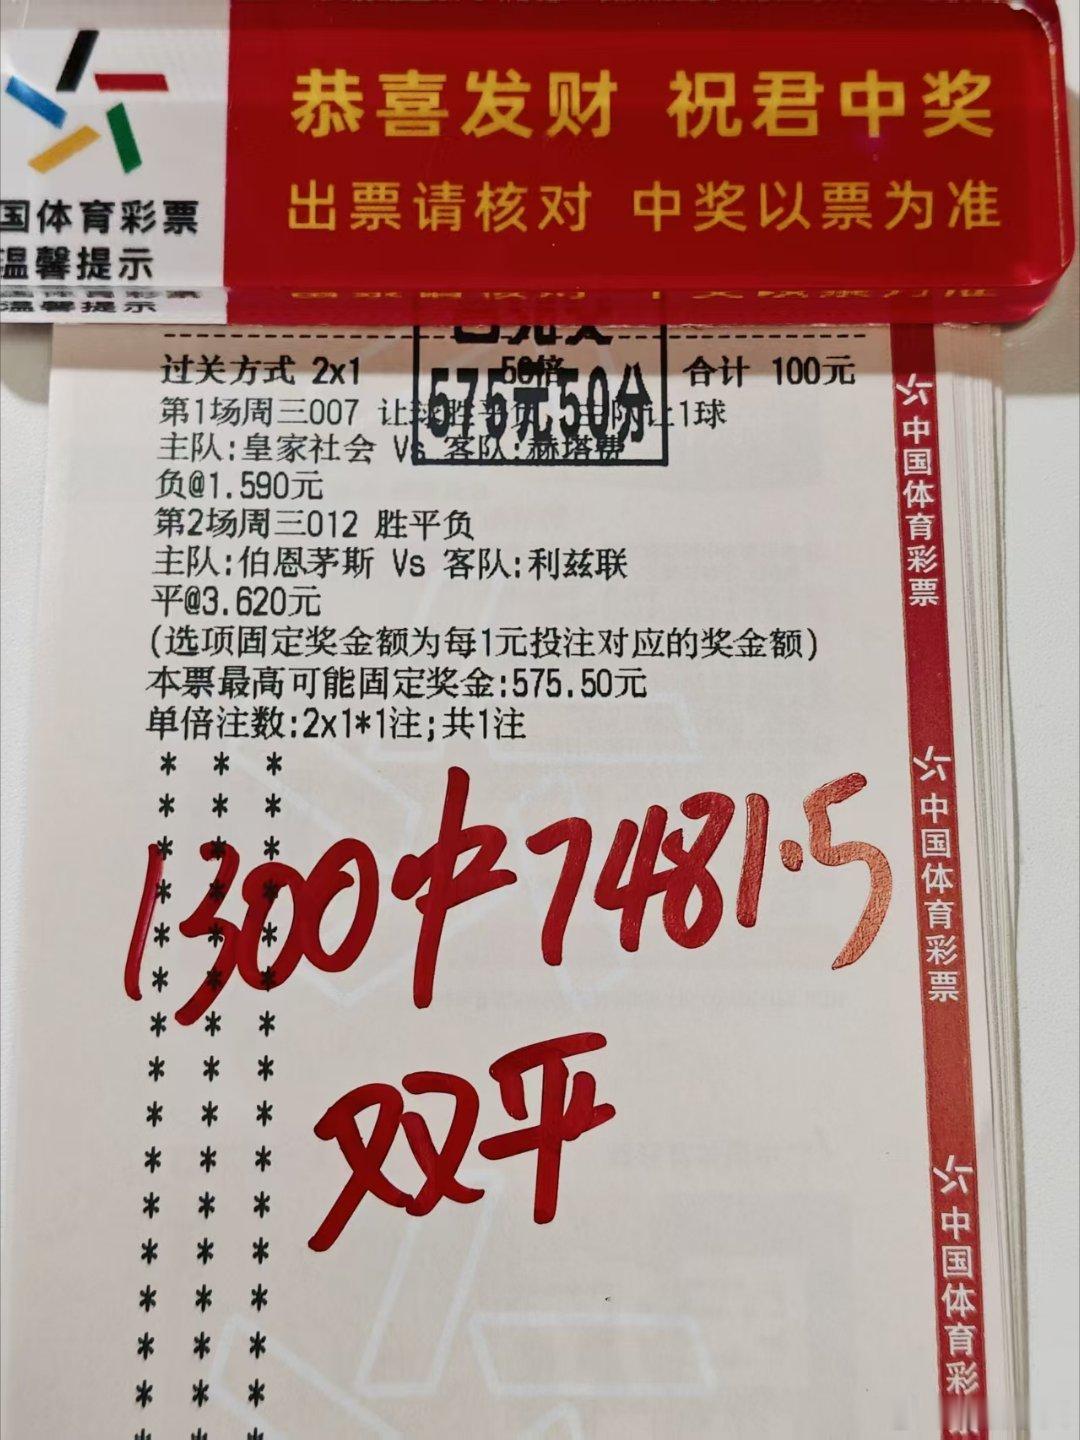 恭喜发财 祝君中奖
出票请核对 中奖以票为准
国体育彩票
温馨提示
575元50分
过关方式 2x1 50倍 合计 100元
第1场周三007 让球胜平负 主队让1球
主队:皇家社会 Vs 客队:赫塔费
负@1.590元
第2场周三012 胜平负
主队:伯恩茅斯 Vs 客队:利兹联
平@3.620元
(选项固定奖金额为每1元投注对应的奖金额)
本票最高可能固定奖金:575.50元
单倍注数:2x1*1注;共1注
1300中7481.5
双平
中国体育彩票
中国体育彩票
中国体育彩